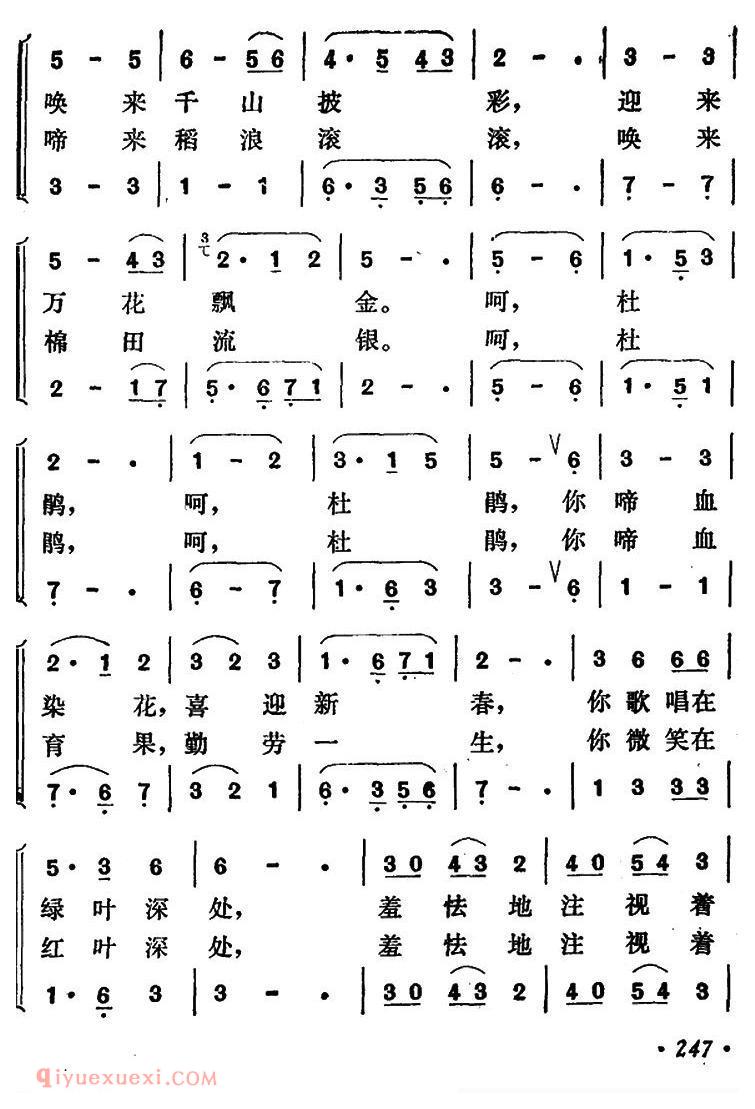 5 - 5 | 6 - 5 6 | 4 · 5 4 3 | 2 - · | 3 - 3 |
唤 来 千 山 披 彩, 迎 来
啼 来 稻 浪 滚 滚, 唤 来
3 - 3 | 1 - 1 | 6 · 3 5 6 | 6 - · | 7 - 7 |
5 - 4 3 | 2 · 1 2 | 5 - · | 5 - 6 | 1 · 5 3 |
万 花 飘 金。 呵, 杜
棉 田 流 银。 呵, 杜
2 - 1 7 | 5 · 6 7 1 | 2 - · | 5 - 6 | 1 · 5 1 |
2 - · | 1 - 2 | 3 · 1 5 | 5 - V 6 | 3 - 3 |
鹃, 呵, 杜 鹃, 你 啼 血
鹃, 呵, 杜 鹃, 你 啼 血
7 - · | 6 - 7 | 1 · 6 3 | 3 - V 6 | 1 - 1 |
2 · 1 2 | 3 2 3 | 1 · 6 7 1 | 2 - · | 3 6 6 6 |
染 花, 喜 迎 新 春, 你 歌 唱 在
育 果, 勤 劳 一 生, 你 微 笑 在
7 · 6 7 | 3 2 1 | 6 · 3 5 6 | 7 - · | 1 3 3 3 |
5 · 3 6 | 6 - · | 3 0 4 3 2 | 4 0 5 4 3 |
绿 叶 深 处, 羞 怯 地 注 视 着
红 叶 深 处, 羞 怯 地 注 视 着
1 · 6 3 | 3 - · | 3 0 4 3 2 | 4 0 5 4 3 |
· 247 ·
qiyuexuexi.COM